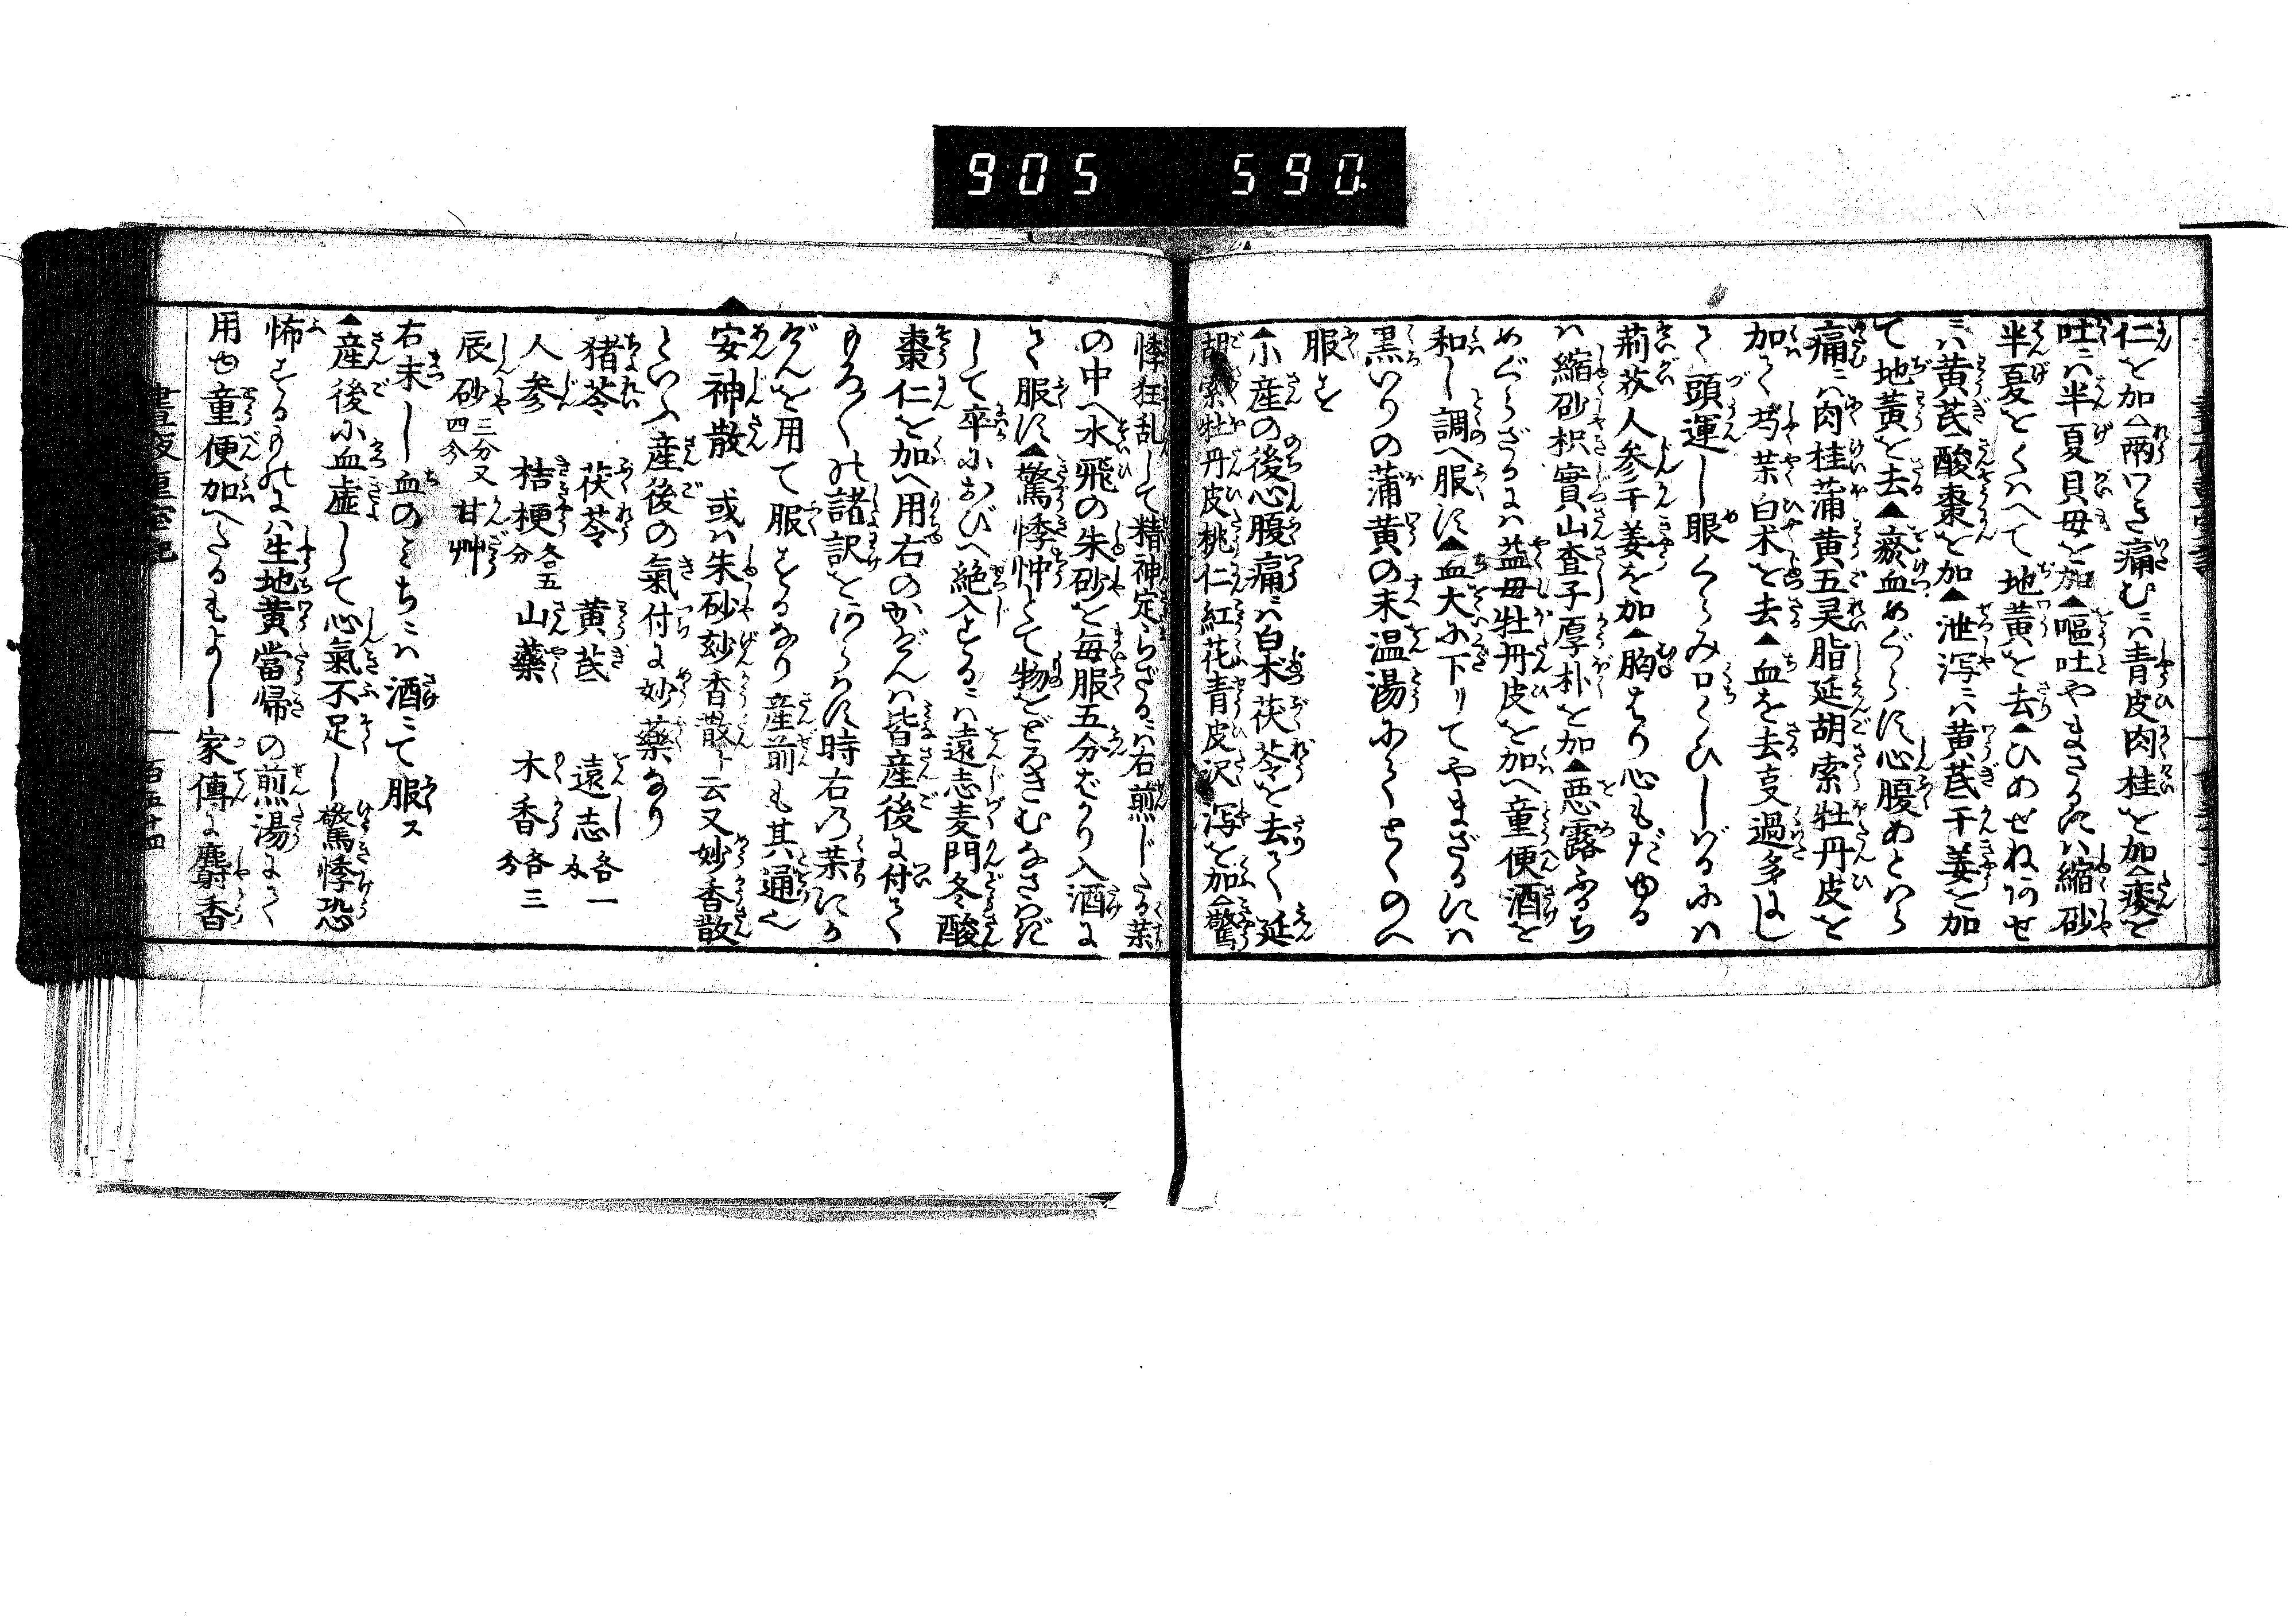 905 590.
仁を加▲両わき痛むニハ青皮肉桂を加▲痰を
吐ニハ半夏貝母を加▲嘔吐やまざるにハ縮砂
半夏をくハへて地黄を去▲ひめぜねつあせ
ニハ黄芪酸棗を加▲泄泻ニハ黄芪干姜を加
て地黄を去▲瘀血めぐらず心腹あとはら
痛ニハ肉桂蒲黄五灵脂延胡索牡丹皮を
加て芍薬白朮を去▲血を去支過多にし
て頭運し眼くらみ口くひしばるにハ
荊芥人参干姜を加▲胸はり心もだゆる
ハ縮砂枳實山査子厚朴を加▲悪露
めぐらざるにハ益母牡丹皮を加へ童便酒を
和し調へ服す▲血大に下りてやまざるにハ
黒いりの蒲黄の末温湯にてとくのへ
服す
▲小産の後心腹痛ニハ白朮茯苓を去て延
胡索牡丹皮桃仁紅花青皮沢泻を加▲驚
悸狂乱して精神定らざるニハ右煎じたる薬
の中へ水飛の朱砂を毎服五分ばかり入酒に
て服す▲驚悸忡とて物をどろきむなさハぎ
して卒におびへ絶入するニハ遠志麦門冬酸
棗仁を加へ用右のかげんハ皆産後に付て
もろ〳〵の諸訳をあらハす時右の薬にか
げんを用て服するなり産前も其通ん
安神散 或ハ朱砂玅香散ト云又妙香散
といふ産後の氣付に妙藥なり
猪苓 茯苓 黄芪 遠志各一
人参 桔梗各五分 山藥 木香各三分
辰砂三分又四分 甘艸
右末し血のみちニハ酒ニて服ス
▲産後に血虚して心氣不足し驚悸恐
怖するものにハ生地黄當帰の煎湯にて
用也童便加へたるもよし家傳に麝香
晝夜重宝記 一百五十四